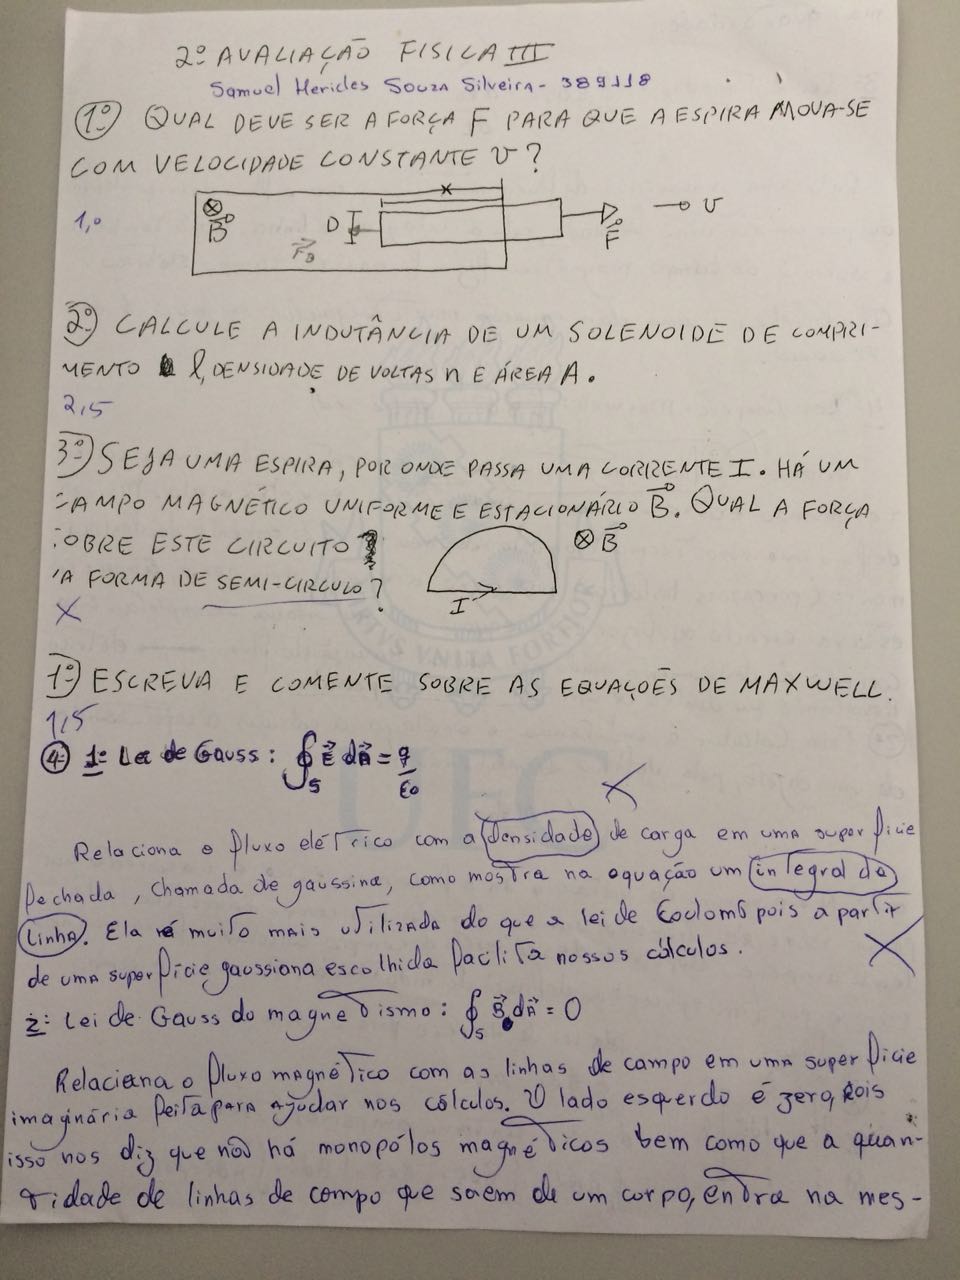 2º AVALIAÇÃO FISICA III
Samuel Hericles Souza Silveira - 389118
1º) QUAL DEVE SER A FORÇA F PARA QUE A ESPIRA MOVA-SE
COM VELOCIDADE CONSTANTE V?
1,0
⊗ B⃗ D x F⃗ v
F⃗B
2º) CALCULE A INDUTÂNCIA DE UM SOLENOIDE DE COMPRI-
MENTO l, DENSIDADE DE VOLTAS n E ÁREA A.
2,5
3º) SEJA UMA ESPIRA, POR ONDE PASSA UMA CORRENTE I. HÁ UM
CAMPO MAGNÉTICO UNIFORME E ESTACIONÁRIO B⃗. QUAL A FORÇA
OBRE ESTE CIRCUITO
'A FORMA DE SEMI-CIRCULO?
I ⊗ B⃗
X
1º) ESCREVA E COMENTE SOBRE AS EQUAÇÕES DE MAXWELL.
1,5
4- 1º Lei de Gauss: ∮S E⃗ dA⃗ = q/ε0
X
Relaciona o fluxo elétrico com a densidade de carga em uma superficie
fechada, chamada de gaussina, como mostra na equação um integral de
linha. Ela é muito mais utilizada do que a lei de Coulomb pois a partir
X
de uma superfície gaussiana escolhida facilita nossos cálculos.
2º Lei de Gauss do magnetismo: ∮S B⃗.dA⃗ = 0
Relaciona o fluxo magnético com as linhas de campo em uma superficie
imaginária feita para ajudar nos cálculos. O lado esquerdo é zero, pois
isso nos diz que não há monopólos magnéticos bem como que a quan-
tidade de linhas de campo que saem de um corpo, entra na mes-
VIRTVS VNITA FORTIOR
UFC